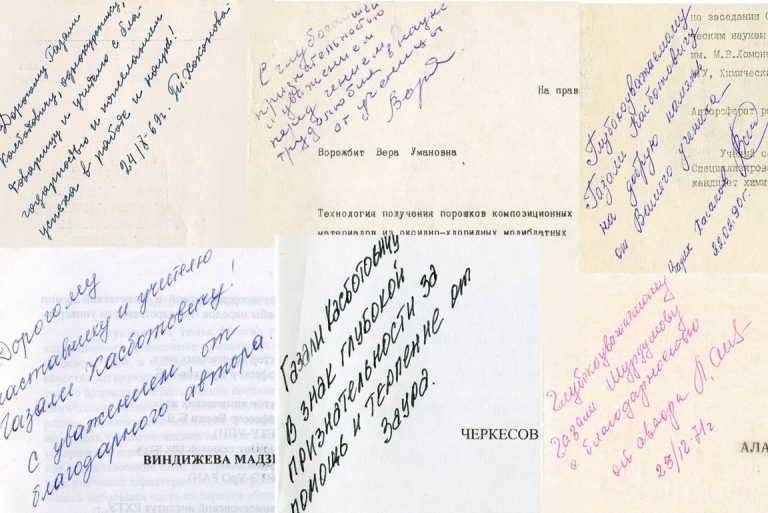 Дорогому Газали
Касботовичу, однокурснику,
товарищу и учителю с бла-
годарностью и пожеланием
успеха в работе и науке!
24/X-69г.
С глубочайшей
признательностью
и уважением
перед гением в науке
трудолюбия
от ученицы
Воря
На прав
Ворожбит Вера Умановна
Технология получения порошков композиционных
материалов из оксидно-хлоридных молибдатных
на заседании С
ческим наукам
им. М.В.Ломоно
У, Химический
Автореферат ра
Учёный се
Специализирова
кандидат хими
Глубокоуважаемому
Газали Касботовичу
на добрую память
от Вашего ученика
Хасанов
22.02.90г.
Дорогому
наставнику и учителю
Газали Хасботовичу!
С уважением, от
благодарного автора
ВИНДИЖЕВА МАДЗ
Газали Касботовичу
В знак глубокой
признательности за
помощь и терпение от
Заура.
ЧЕРКЕСОВ
Глубокоуважаемому
Газали Шурдумову
с благодарностью
от автора
23/12-71г
АЛА